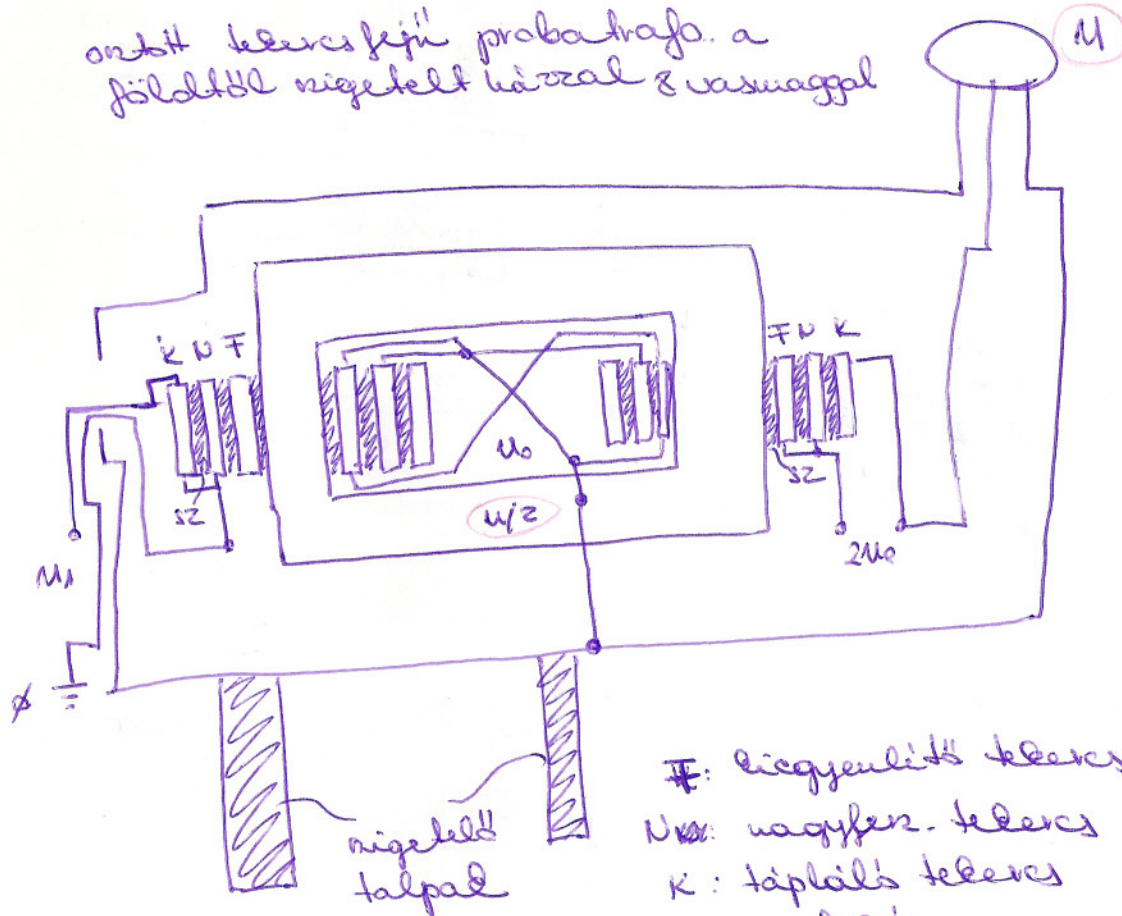 osztott tekercsfejű probatrafo. a
földtől szigetelt házzal & vasmaggal
U
K N F
F N K
U₀
SZ
SZ
U/2
U₁
2U₀
ø
szigetelő
talpak
F: kiegyenlítő tekercs
N: nagyfesz. tekercs
K: tápláló tekercs